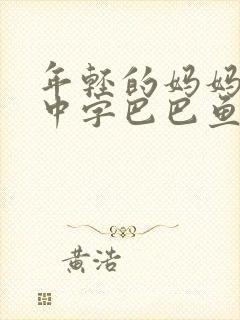 年轻的妈妈
中字巴巴鱼
黄浩